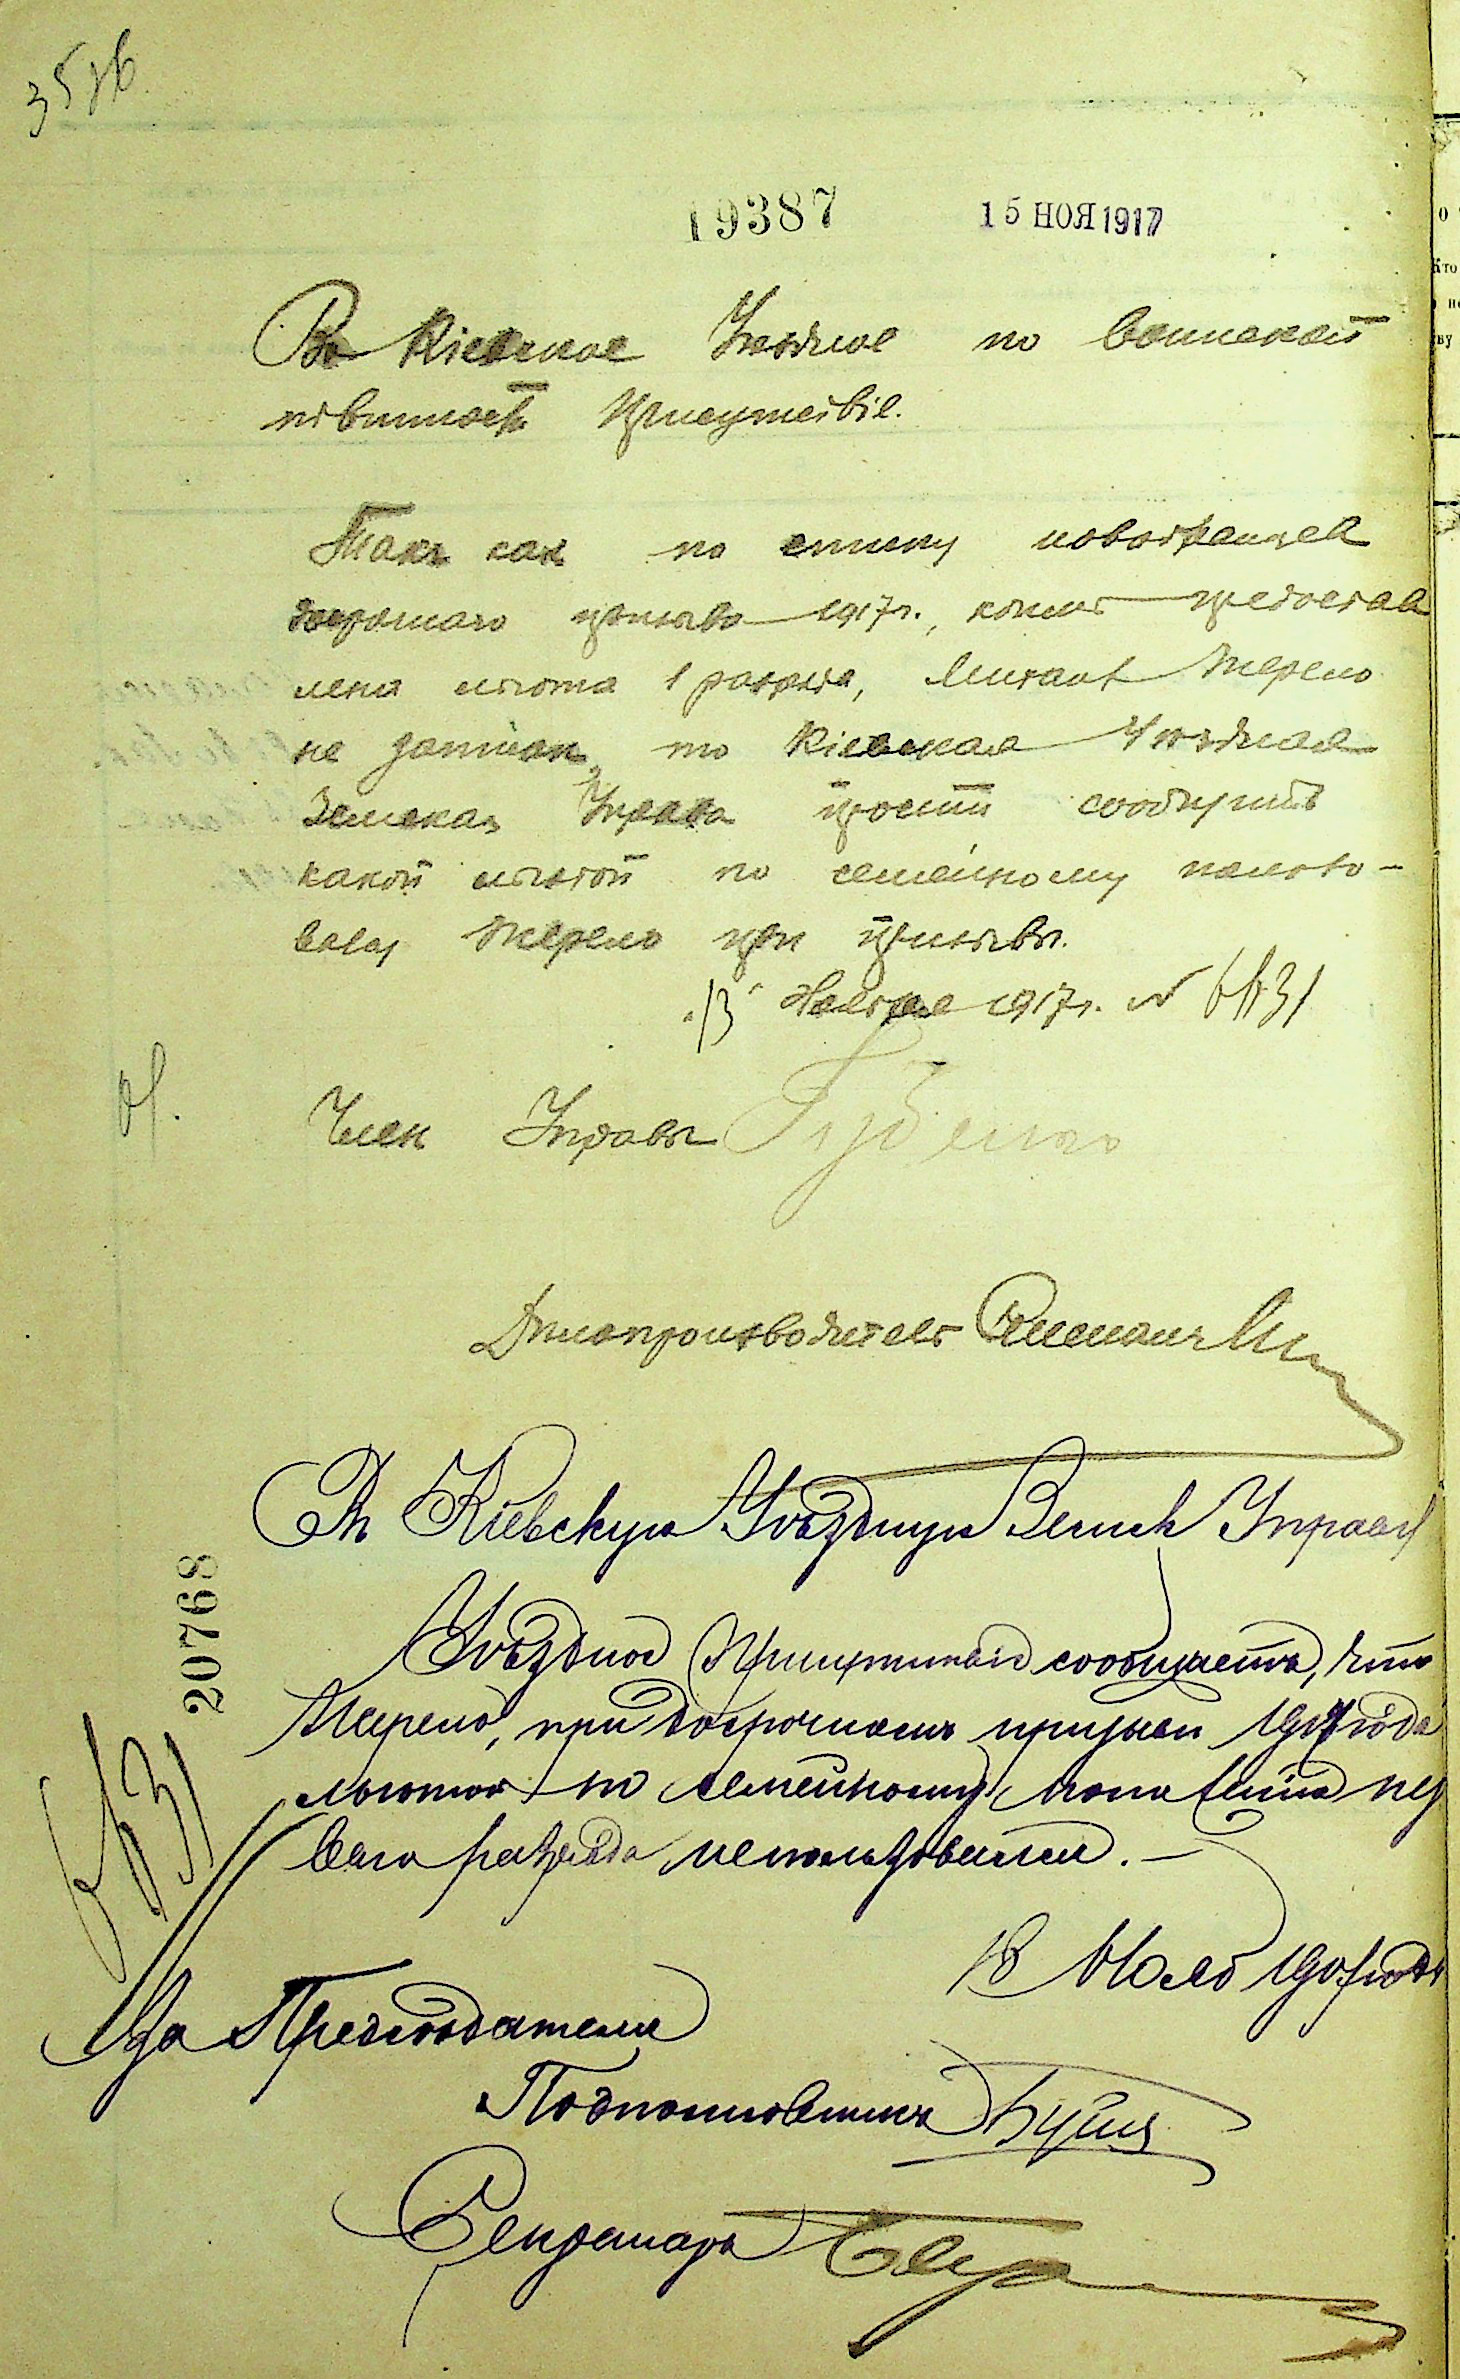 19387 15 НОЯ 1917
Въ Кіевское Уѣздное по воинской
повинности Присутствіе.
Такъ какъ по списку новобранцевъ
досрочнаго призыва 1917 г., коимъ предостав
лена льгота 1 разряда, Жерело
не записанъ, то Кіевская Уѣздная
Земская Управа проситъ сообщить
какой льготой по семейному положе-
Жерело при призывѣ.
"13" Ноября 1917 г. №
Членъ Управы
Дѣлопроизводитель
Въ Кіевскую Уѣздную Земск Управу
20768
Уѣздное Присутствіе сообщаетъ, что
Жерело, при досрочномъ призывѣ 1917 года
льготой по семейному пер
ваго разряда не пользовался. —
18 Нояб 1917 года
За Предсѣдателя
Подполковникъ
Секретарь